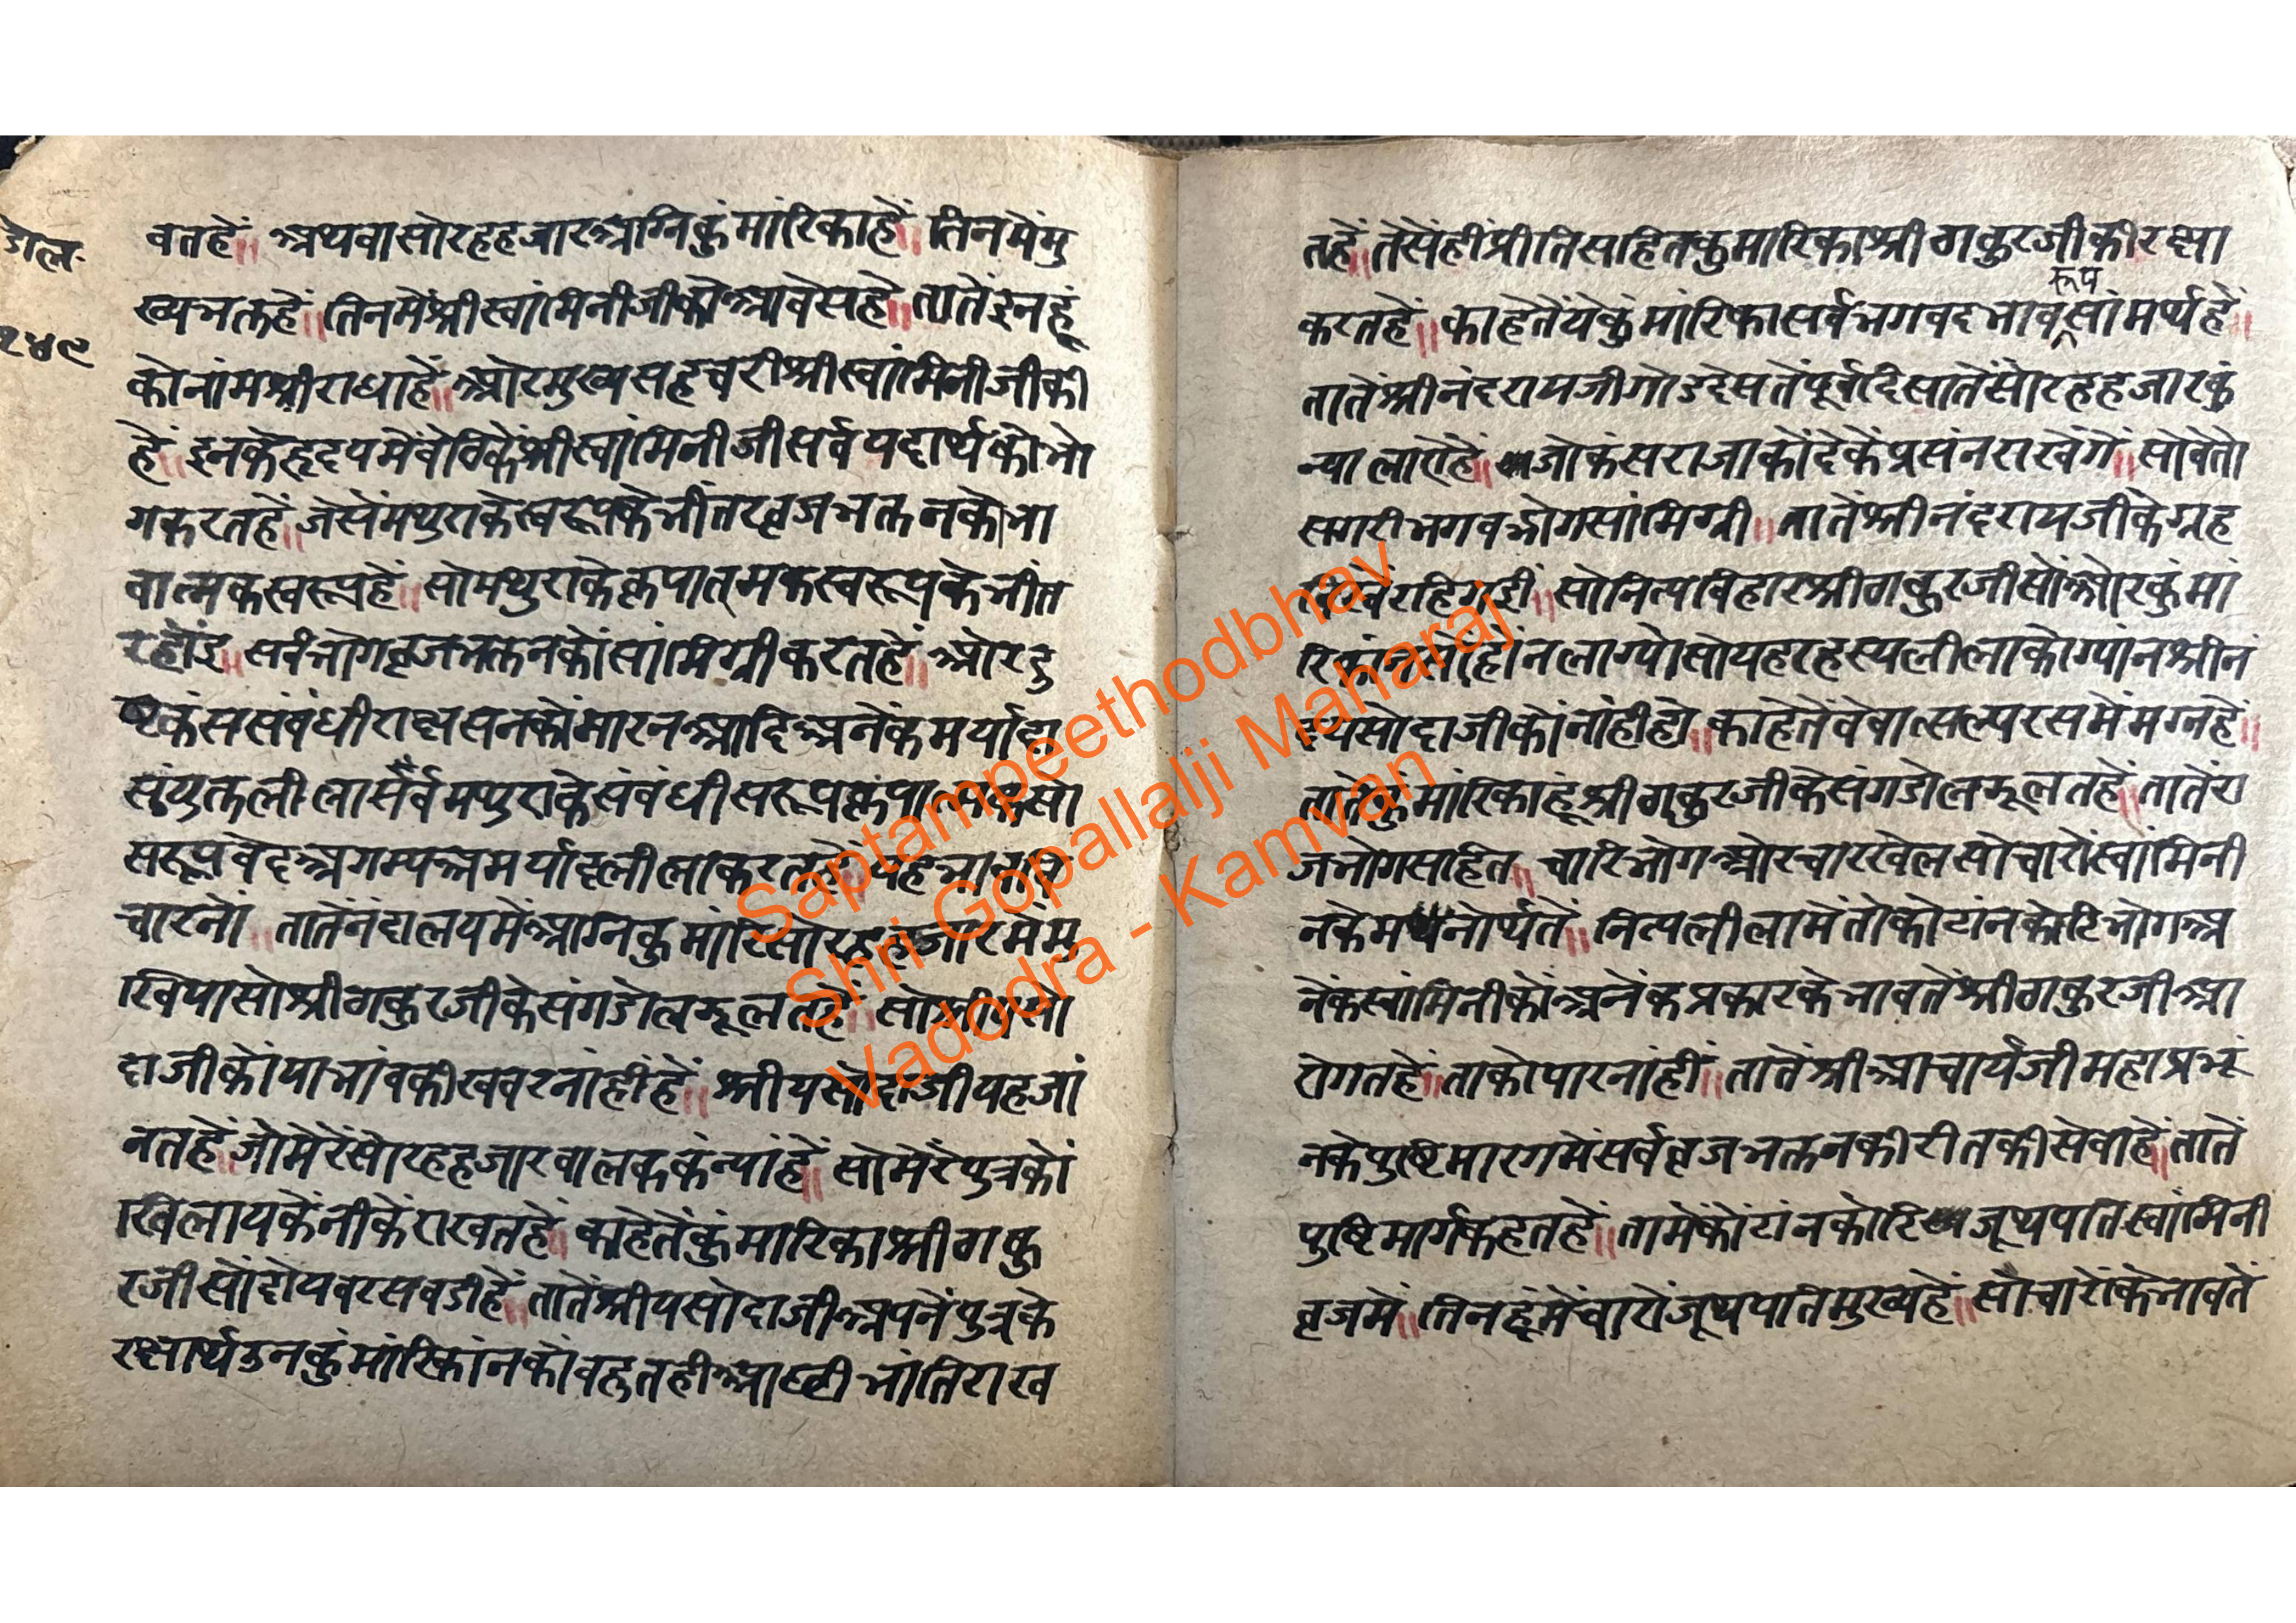 डोल
२४९
वतहें॥ अथवा सोरह हजार अग्निकुंमारिकाहें॥ तिनमेंमु
ख्यभक्तहें॥ तिनमेंश्रीस्वांमिनीजीको आवेसहे॥ तातेंइनहूं
कोनांमश्रीराधाहें॥ ओरमुख्यसहचरीश्रीस्वांमिनीजीकी
हें॥ इनकेहृदयमेंवेठिकेंश्रीस्वांमिनीजीसर्वपदार्थकोभो
गकरतहें॥ जेसेंमथुराकेस्वरूपकेभींतरव्रजभक्तनकोभा
वात्मकस्वरूपहें॥ सोमथुराकेक्रपात्मकस्वरूपकेभींत
रहोंइ॥ सर्वभोगव्रजभक्तनकोंसांमिग्रीकरतहें॥ ओरदु
ष्टकंससंबंधीराक्षसनकोंमारनआदिअनेंकमर्यादा
संयुक्तलीलासर्वमथुराकेसंबंधीसरूप
सरूपवेदअगम्यअमर्यादलीलाकरतहें॥ यहभाव
चारनों॥ तातेंनंदालयमेंअग्निकुमारिसोरहहजारमेंमु
खियासोश्रीठाकुरजीकेसंगडोलझूलतहें॥ सोश्रीयसो
दाजीकोंयाभांवकीखबरनांहींहें॥ श्रीयसोदाजीयहजां
नतहेंजोमेरेंसोरहहजारवालककंन्यांहें॥ सोमेरेंपुत्रकों
खिलायकेंनीकेंराखतहें॥ काहेतेंकुंमारिकाश्रीठाकु
रजीसोंदोयवरसवडीहें॥ तातेंश्रीयसोदाजीअपनेंपुत्रके
रक्षार्थउनकुंमारिकांनकोंवहुतहीआछीभांतिराख
तहें॥ तेसेंहींप्रीतिसहितकुमारिकाश्रीठाकुरजीकीरक्षा
रूप
करतहें॥ काहेतेंयेकुंमारिकासर्वभगवदभावसांमर्थहें॥
तातेंश्रीनंदरायजीगोडदेसतेंपूर्वदिसातेंसोरहहजारकुं
न्यालाएहें॥ जोकंसराजाकोंदेकेंप्रसंनराखेंगें॥ सोवेतो
सगरीभगवद्भोगसांमिग्री॥ तातेंश्रीनंदरायजीकेग्रह
रहिगई॥ सोनित्यविहारश्रीठाकुरजीसोंओरकुंमां
होंनलाग्योसोयहरहस्यलीलाकोग्यांनश्रीनं
यसोदाजीकोंनांहीहो॥ काहेतेंवेवात्सल्यरसमेंमग्नहें॥
तातेंकुंमारिकाहूंश्रीठाकुरजीकेसंगडोलझूलतहें॥ तातेंरा
जभोगसहित॥ चारिभोगओरचारखेलसोचारोंस्वांमिनी
नकेमनोर्थतें॥ नित्यलीलामेंतोकोटांनकोटिभोगअ
नेंकस्वांमिनीकोंअनेंकप्रकारकेभावतेंश्रीठाकुरजीआ
रोगतहें॥ ताकोपारनांहीं॥ तातेंश्रीआचार्यजीमहाप्रभू
नकेपुष्टिमारगमेंसर्वव्रजभक्तनकीरीतकीसेवाहें॥ तातें
पुष्टिमार्गकहतहें॥ तामेंकोटांनकोटिजूथपतिस्वांमिनी
व्रजमें॥ तिनहूंमेंचारोंजूथपतिमुख्यहें॥ सोचारोंकेभावतें
Saptampeethodbhav
Shri Gopallalji Maharaj
Vadodra - Kamvan